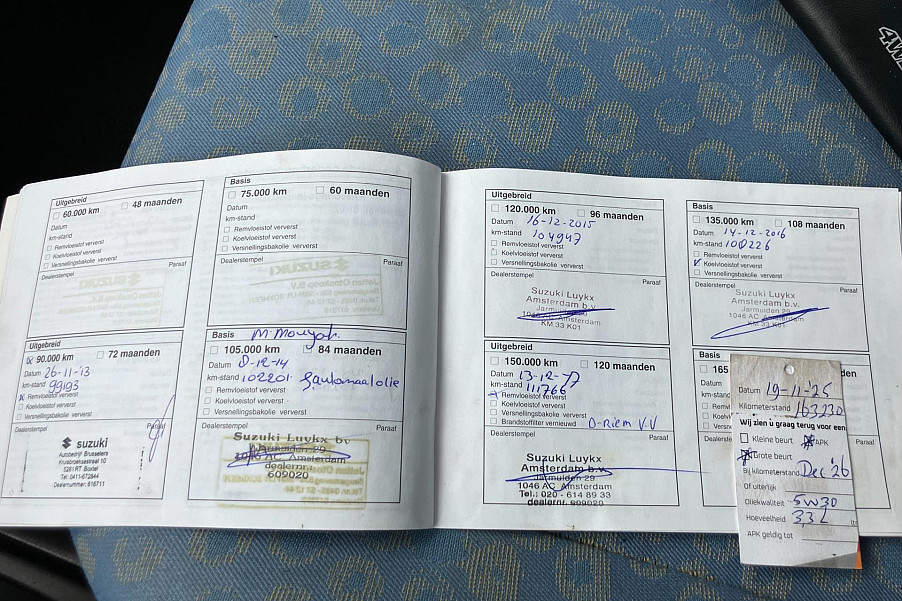 4W
Uitgebreid
60.000 km 48 maanden
Datum
km-stand
Remvloeistof ververst
Koelvloeistof ververst
Versnellingsbakolie ververst
Dealerstempel Paraaf
Uitgebreid
90.000 km 72 maanden
Datum 26-11-13
km-stand 99193
Remvloeistof ververst
Koelvloeistof ververst
Versnellingsbakolie ververst
Dealerstempel Paraaf
suzuki
Autobedrijf Brusselers
Kruisbroeksestraat 10
5281 RT Boxtel
Tel: 0411-672844
Dealernummer: 616711
Basis
75.000 km 60 maanden
Datum
km-stand
Remvloeistof ververst
Koelvloeistof ververst
Versnellingsbakolie ververst
Dealerstempel Paraaf
SUZUKI
Basis
105.000 km 84 maanden
Datum 8-12-14
km-stand 102201
Remvloeistof ververst
Koelvloeistof ververst
Versnellingsbakolie ververst
Suzuki Luykx bv
Jarmuiden 29
1046 AC Amsterdam
dealernr.
609020
Uitgebreid
120.000 km 96 maanden
Datum 16-12-2015
km-stand 104947
Remvloeistof ververst
Koelvloeistof ververst
Versnellingsbakolie ververst
Dealerstempel Paraaf
Suzuki Luykx
Amsterdam b.v.
Jarmuiden 29
1046 AC Amsterdam
KM 33 K01
Uitgebreid
150.000 km 120 maanden
Datum 13-12-17
km-stand 111766
Remvloeistof ververst
Koelvloeistof ververst
Versnellingsbakolie ververst
Brandstoffilter vernieuwd D-Riem V.V
Dealerstempel Paraaf
Suzuki Luykx
Amsterdam b.v.
Jarmuiden 29
1046 AC Amsterdam
Tel.: 020 - 614 89 33
dealernr. 609020
Basis
135.000 km 108 maanden
Datum 14-12-2016
km-stand 108226
Remvloeistof ververst
Koelvloeistof ververst
Versnellingsbakolie ververst
Dealerstempel Paraaf
Suzuki Luykx
Amsterdam b.v.
Jarmuiden 29
1046 AC Amsterdam
KM 33 K01
Basis
165
Datum
km-stand
Datum 19-11-25
Kilometerstand 163230
Wij zien u graag terug voor een
Kleine beurt APK
Grote beurt
Bij kilometerstand Dec '26
Of uiterlijk
Oliekwaliteit 5W30
Hoeveelheid 3,3L ltr
APK geldig tot